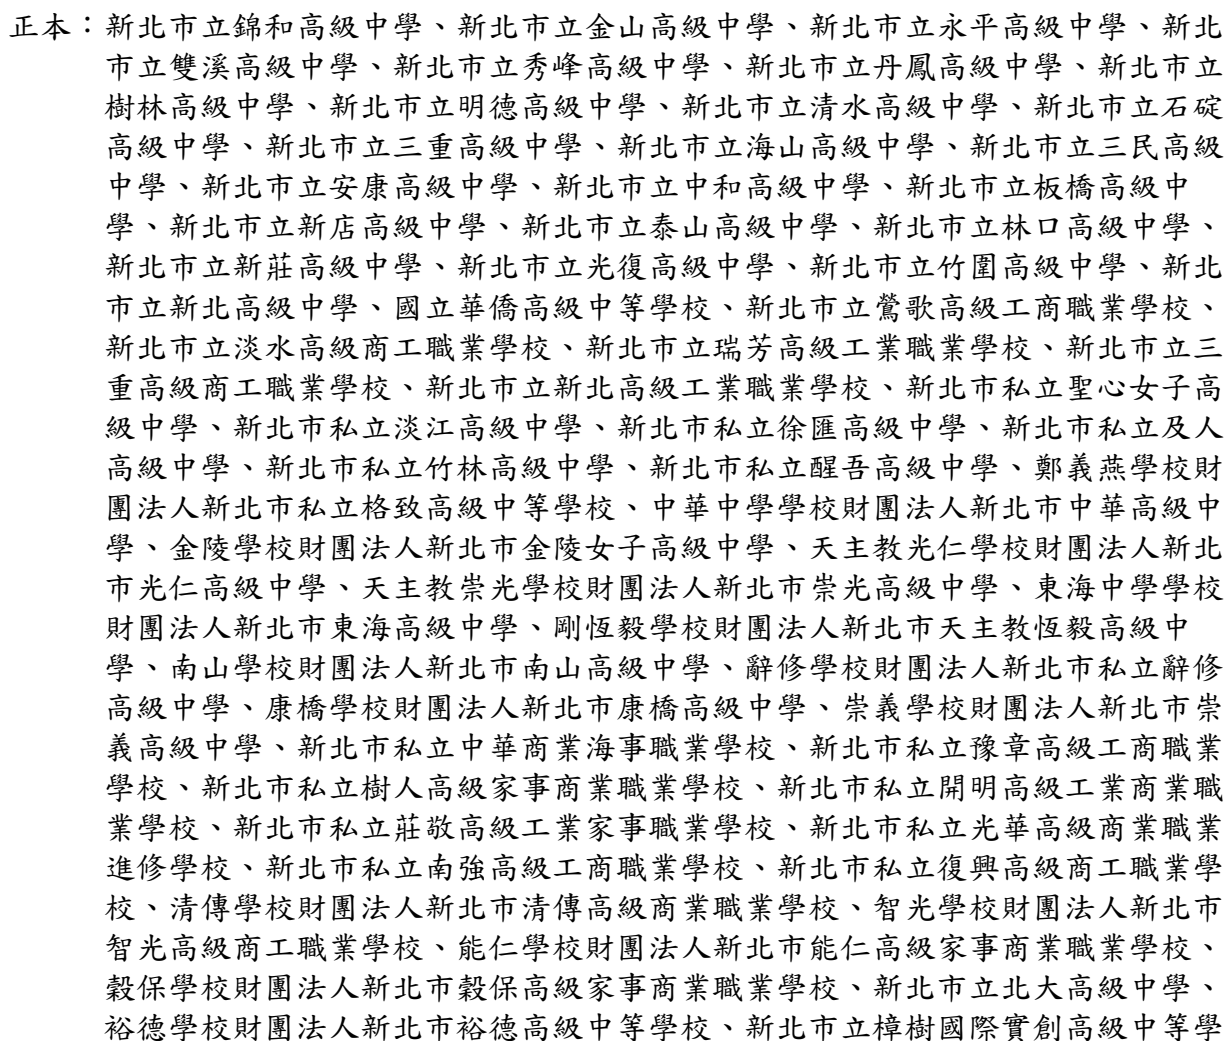 正本：新北市立錦和高級中學、新北市立金山高級中學、新北市立永平高級中學、新北
市立雙溪高級中學、新北市立秀峰高級中學、新北市立丹鳳高級中學、新北市立
樹林高級中學、新北市立明德高級中學、新北市立清水高級中學、新北市立石碇
高級中學、新北市立三重高級中學、新北市立海山高級中學、新北市立三民高級
中學、新北市立安康高級中學、新北市立中和高級中學、新北市立板橋高級中
學、新北市立新店高級中學、新北市立泰山高級中學、新北市立林口高級中學、
新北市立新莊高級中學、新北市立光復高級中學、新北市立竹圍高級中學、新北
市立新北高級中學、國立華僑高級中等學校、新北市立鶯歌高級工商職業學校、
新北市立淡水高級商工職業學校、新北市立瑞芳高級工業職業學校、新北市立三
重高級商工職業學校、新北市立新北高級工業職業學校、新北市私立聖心女子高
級中學、新北市私立淡江高級中學、新北市私立徐匯高級中學、新北市私立及人
高級中學、新北市私立竹林高級中學、新北市私立醒吾高級中學、鄭義燕學校財
團法人新北市私立格致高級中等學校、中華中學學校財團法人新北市中華高級中
學、金陵學校財團法人新北市金陵女子高級中學、天主教光仁學校財團法人新北
市光仁高級中學、天主教崇光學校財團法人新北市崇光高級中學、東海中學學校
財團法人新北市東海高級中學、剛恆毅學校財團法人新北市天主教恆毅高級中
學、南山學校財團法人新北市南山高級中學、辭修學校財團法人新北市私立辭修
高級中學、康橋學校財團法人新北市康橋高級中學、崇義學校財團法人新北市崇
義高級中學、新北市私立中華商業海事職業學校、新北市私立豫章高級工商職業
學校、新北市私立樹人高級家事商業職業學校、新北市私立開明高級工業商業職
業學校、新北市私立莊敬高級工業家事職業學校、新北市私立光華高級商業職業
進修學校、新北市私立南強高級工商職業學校、新北市私立復興高級商工職業學
校、清傳學校財團法人新北市清傳高級商業職業學校、智光學校財團法人新北市
智光高級商工職業學校、能仁學校財團法人新北市能仁高級家事商業職業學校、
穀保學校財團法人新北市穀保高級家事商業職業學校、新北市立北大高級中學、
裕德學校財團法人新北市裕德高級中等學校、新北市立樟樹國際實創高級中等學